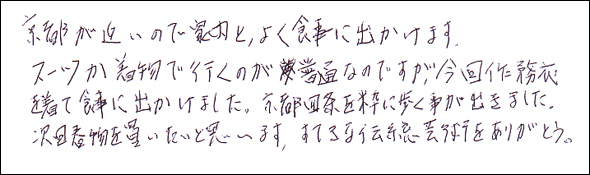 京都が近いので家内と、よく食事に出かけます。
スーツか着物で行くのが普通なのですが、今回作務衣
を着て食事に出かけました。京都四条を粋に歩く事が出きました。
次回着物を買いたいと思います、すてきな伝統芸術をありがとう。